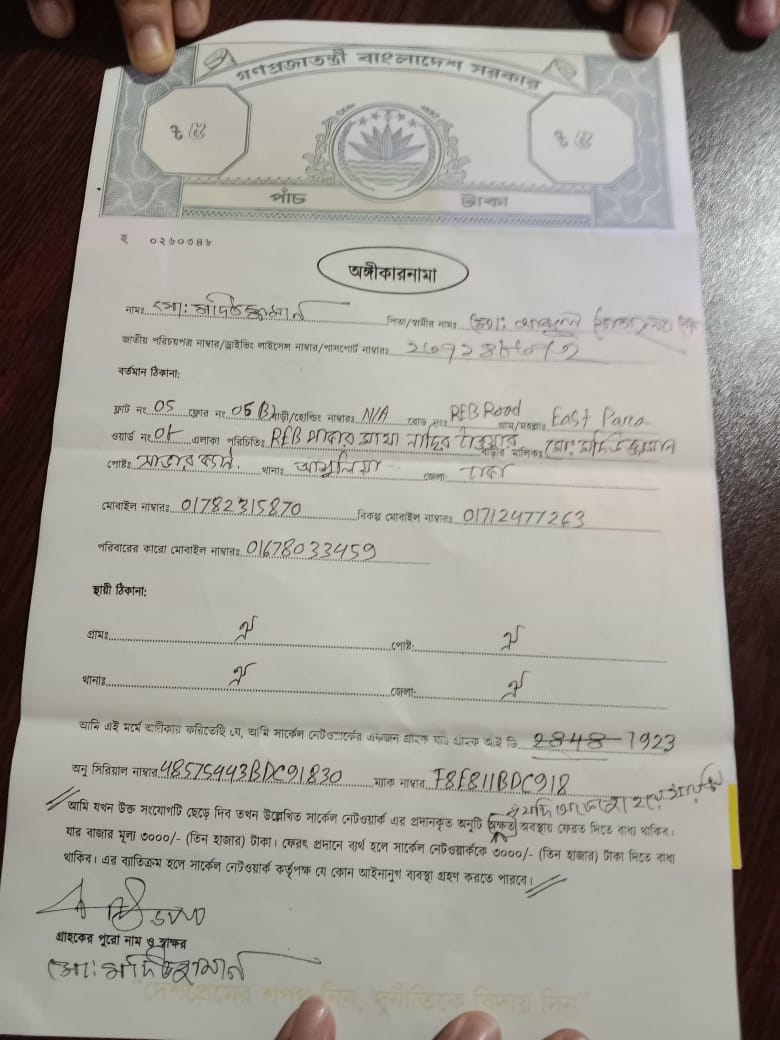 গণপ্রজাতন্ত্রী বাংলাদেশ সরকার
৳ ৫ ৳ ৫
পাঁচ টাকা
ব ০২৬০৩৪৮
অঙ্গীকারনামা
নামঃ মো: পিতা/স্বামীর নামঃ মো:
জাতীয় পরিচয়পত্র নাম্বার/ড্রাইভিং লাইসেন্স নাম্বার/পাসপোর্ট নাম্বারঃ
বর্তমান ঠিকানা:
ফ্লাট নং 05 ফ্লোর নং 05 (B) বাড়ী/হোল্ডিং নাম্বারঃ N/A রোড নংঃ PEB Road গ্রাম/মহল্লাঃ East Para
ওয়ার্ড নং এলাকা পরিচিতিঃ টাওয়ার বাড়ীর মালিকঃ মো:
পোষ্টঃ সাভার ক্যান্ট. থানাঃ আশুলিয়া জেলা: ঢাকা
মোবাইল নাম্বারঃ 01782315870 বিকল্প মোবাইল নাম্বারঃ 01712477263
পরিবারের কারো মোবাইল নাম্বারঃ 01678033459
স্থায়ী ঠিকানা:
গ্রামঃ ঐ পোষ্ট: ঐ
থানাঃ ঐ জেলা: ঐ
আমি এই মর্মে অঙ্গীকার করিতেছি যে, আমি সার্কেল নেটওয়ার্কের একজন গ্রাহক যার গ্রাহক আই ডি 2848 1923
অনু সিরিয়াল নাম্বার 48575443BDC91830 ম্যাক নাম্বার F8E811BDC918
আমি যখন উক্ত সংযোগটি ছেড়ে দিব তখন উল্লেখিত সার্কেল নেটওয়ার্ক এর প্রদানকৃত অনুটি অক্ষত অবস্থায় ফেরত দিতে বাধ্য থাকিব।
যার বাজার মূল্য ৩০০০/- (তিন হাজার) টাকা। ফেরৎ প্রদানে ব্যর্থ হলে সার্কেল নেটওয়ার্ককে ৩০০০/- (তিন হাজার) টাকা দিতে বাধ্য
থাকিব। এর ব্যতিক্রম হলে সার্কেল নেটওয়ার্ক কর্তৃপক্ষ যে কোন আইনানুগ ব্যবস্থা গ্রহণ করতে পারবে।
গ্রাহকের পুরো নাম ও স্বাক্ষর
মো:
"দেশপ্রেমের শপথ নিন, দুর্নীতিকে বিদায় দিন"